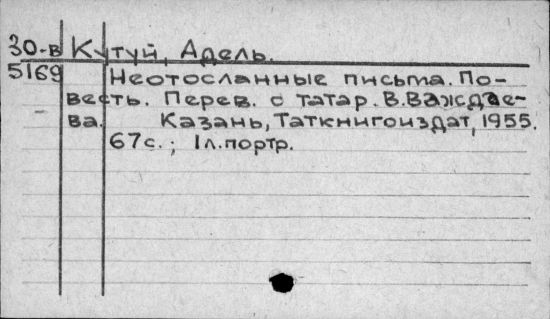 30-в Кутуй, Адель.
5169 Неотосланные письма. По-
весть. Перев. с татар. В. Важдае-
ва. Казань, Таткнигоиздат, 1955.
67с.; 1л. портр.